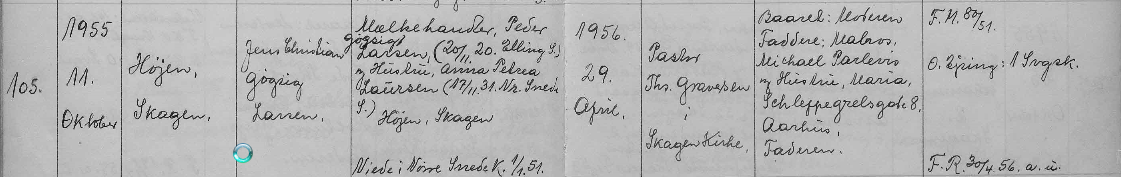 105.
1955
11.
Oktober
Höjen,
Skagen,
Jens Christian
Gögsig
Larsen.
Mælkehandler, Peder
Gögsig
Larsen, (20/11. 20. Elling S.)
og Hustru, Anna Petrea
Laursen (17/11. 31. Nr. Snede
S.) Höjen, Skagen
Viede i Nörre Snede K. 1/1. 51.
1956.
29.
April.
Pastor
Ths. Gravesen
i
Skagen Kirke,
Baarel: Moderen
Faddere: Matros,
Michael Parlevis
og Hustru, Maria,
Schleppegrelsgade 8,
Aarhus,
Faderen.
F. M. 80/51.
O. Hjring: 1 Svgsk.
F. R. 30/4. 56. a. u.